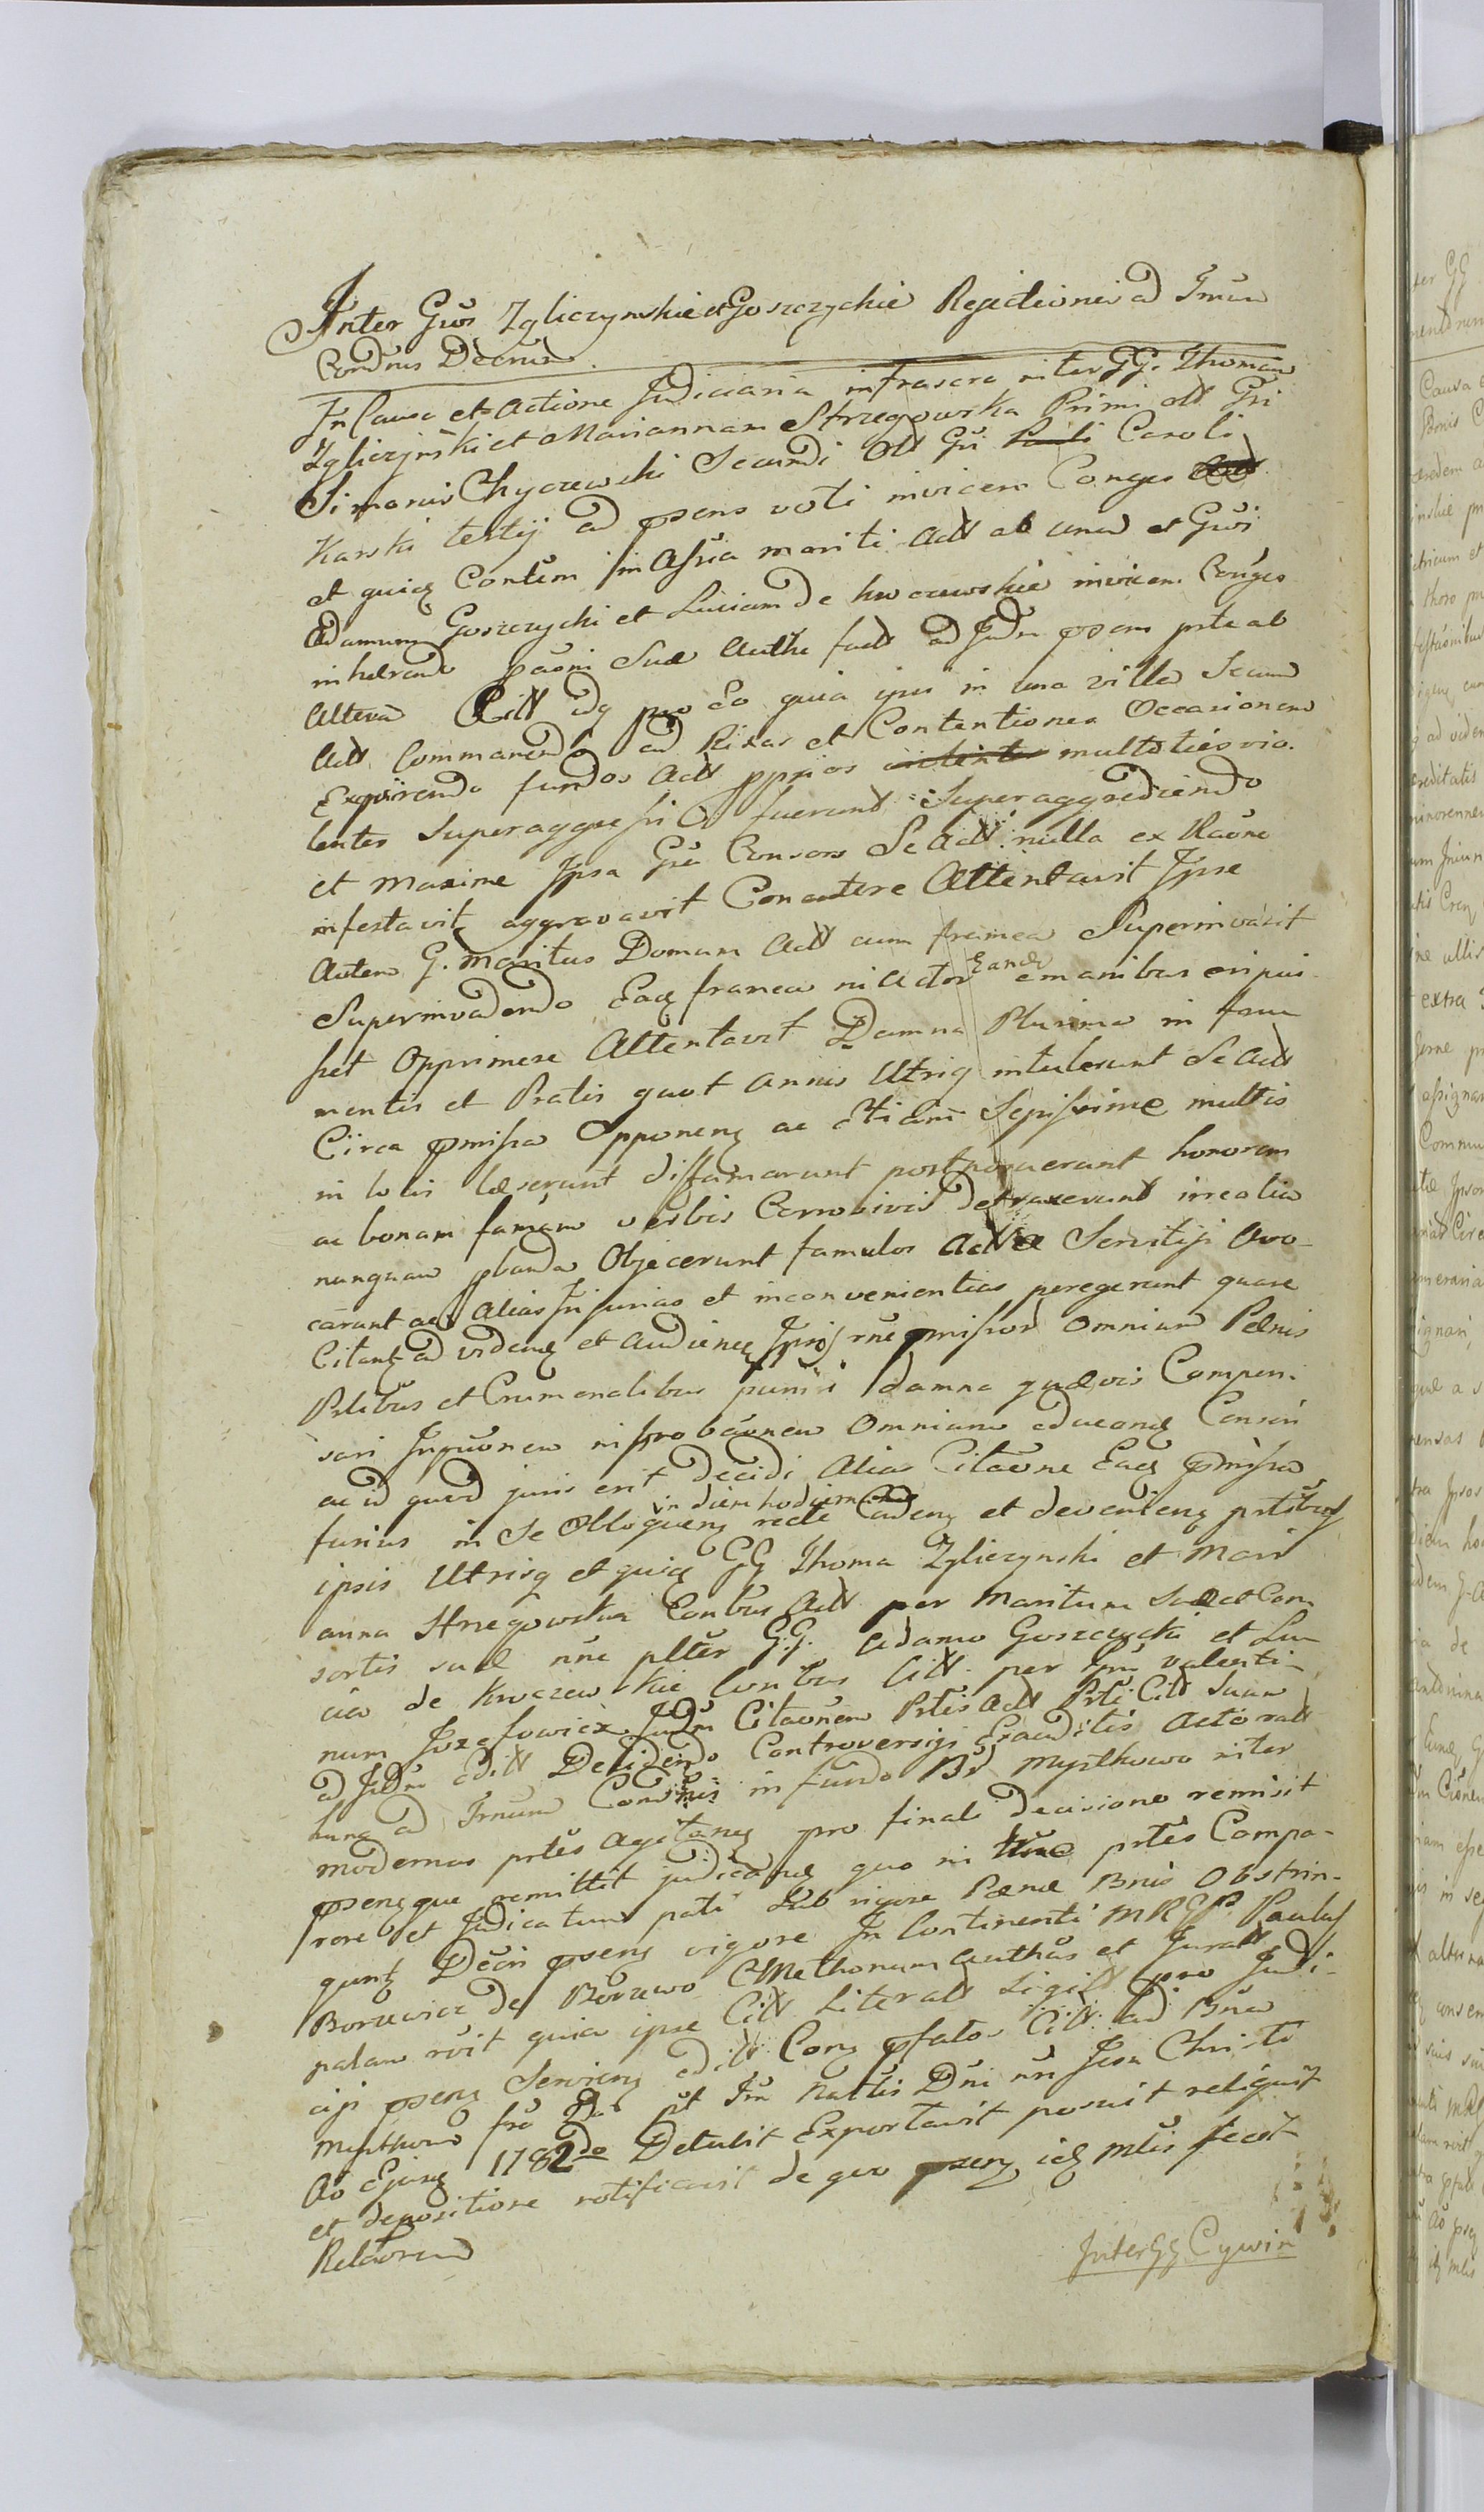 Inter Gños Zgliczynskie et Goszczychie Rejectionis ad Jmum
Cond̃nis Decrũm
In Causa et Actione Judiciaria infrascra inter GG. Thomam
Zgliczyński et Mariannam Strzegowska Primi olt Gñi
Simonis Chyczewski Secundi olt Gñi Caroli
Karski tertij ad psens voti invicem Conges
et quicq Contum in Assria mariti Actt ab una et Gños
Adamum Goszczycki et Luciam de Kwoczewskie invicem Conges
inhærend Sue Authe factt ad Judm psens prte ab
Altera Citt idq pro Eo quia ipsi in una villa Secum
Actt Commorando ad Rixas et Contentiones Occasionem
Exquirendo fundos Actt pprios multoties vio-
lenter Superaggressi fuerunt Superaggrediendo
et maxime Ipsa Gña Consors Se Actt nulla ex Raõne
infestavit aggravavit Conautere Attentavit Ipse
Autem G. Maritus Domum Actt cum framea Superinvasit
Superinvadendo Eaq framea ni Actor Eandē emanibus eripuis-
set Opprimere Attentavit Damna Plurima in fru-
mentis et Pratis quot Annis Utriq intulerunt Se Actt
Circa pmissa Opponenq ac etiam Sepissime multis
in locis læserunt diffamarunt postposuerunt honorem
ac bonam famam verbis Corrosivis detraxerunt irrealia
nunquam pbanda Objecerunt famulos Actt Servitij Avo-
carunt ac alias Injurias et inconvenientias peregerunt quare
Citantq ad videnq et Audienq Ipsos rñe pmissor omnium Pœnis
Prlibus et Criminalibus puniri damna quævis Compen-
sari omnium
ac id quod juris erit decidi Alias Citaõne Eaq pmissa
fusius in Se Obloquenq in diem hodiernam recte Cadenq et devenienq prtibus
ipsis Utrisq et quicq GG Thoma Zgliczynski et Mari
anna Strzegowska Contbus Actt per Maritum Suæ et Con-
sortis suæ nñe plter GG. Adamo Goszczycki et Lu-
cia de Kwoczewskie Contbus Citt per Gñu valenti-
num Jozefowicz Judm Citaõnem Prtis Actt Prti Citt Suam
ad Judm editt Decidendo Controversijs Exauditis Actoratt
hunc ad Jmum Condnis in fundo Br Mystkowo inter
modernas prtes Agitanq pro finali decisione remisit
psensque remittit judicanq quo in trño prtes Compa-
rere et Judicatum pati Sub rigore Pœnæ Bnis Obstrin-
guntq Decri psens vigore In Continenti MRGP. Paulus
Borzewicz de Borzewo CMethonum Authus et Juratt
palam rñit quia ipse Citt Literatt Sigitt pro Judi-
cij psens Servienq editt Conq psatos Citt ad Bna
Mystkowo fr̃a Da pt Jm Natlis Dñi nri Jesu Christi
Ao Ejusq 1782do Detulit Exportavit posuit reliquit
et depositione notificavit de quo psens idq Mlis fecit
Relaõnem
Inter GG Cywin